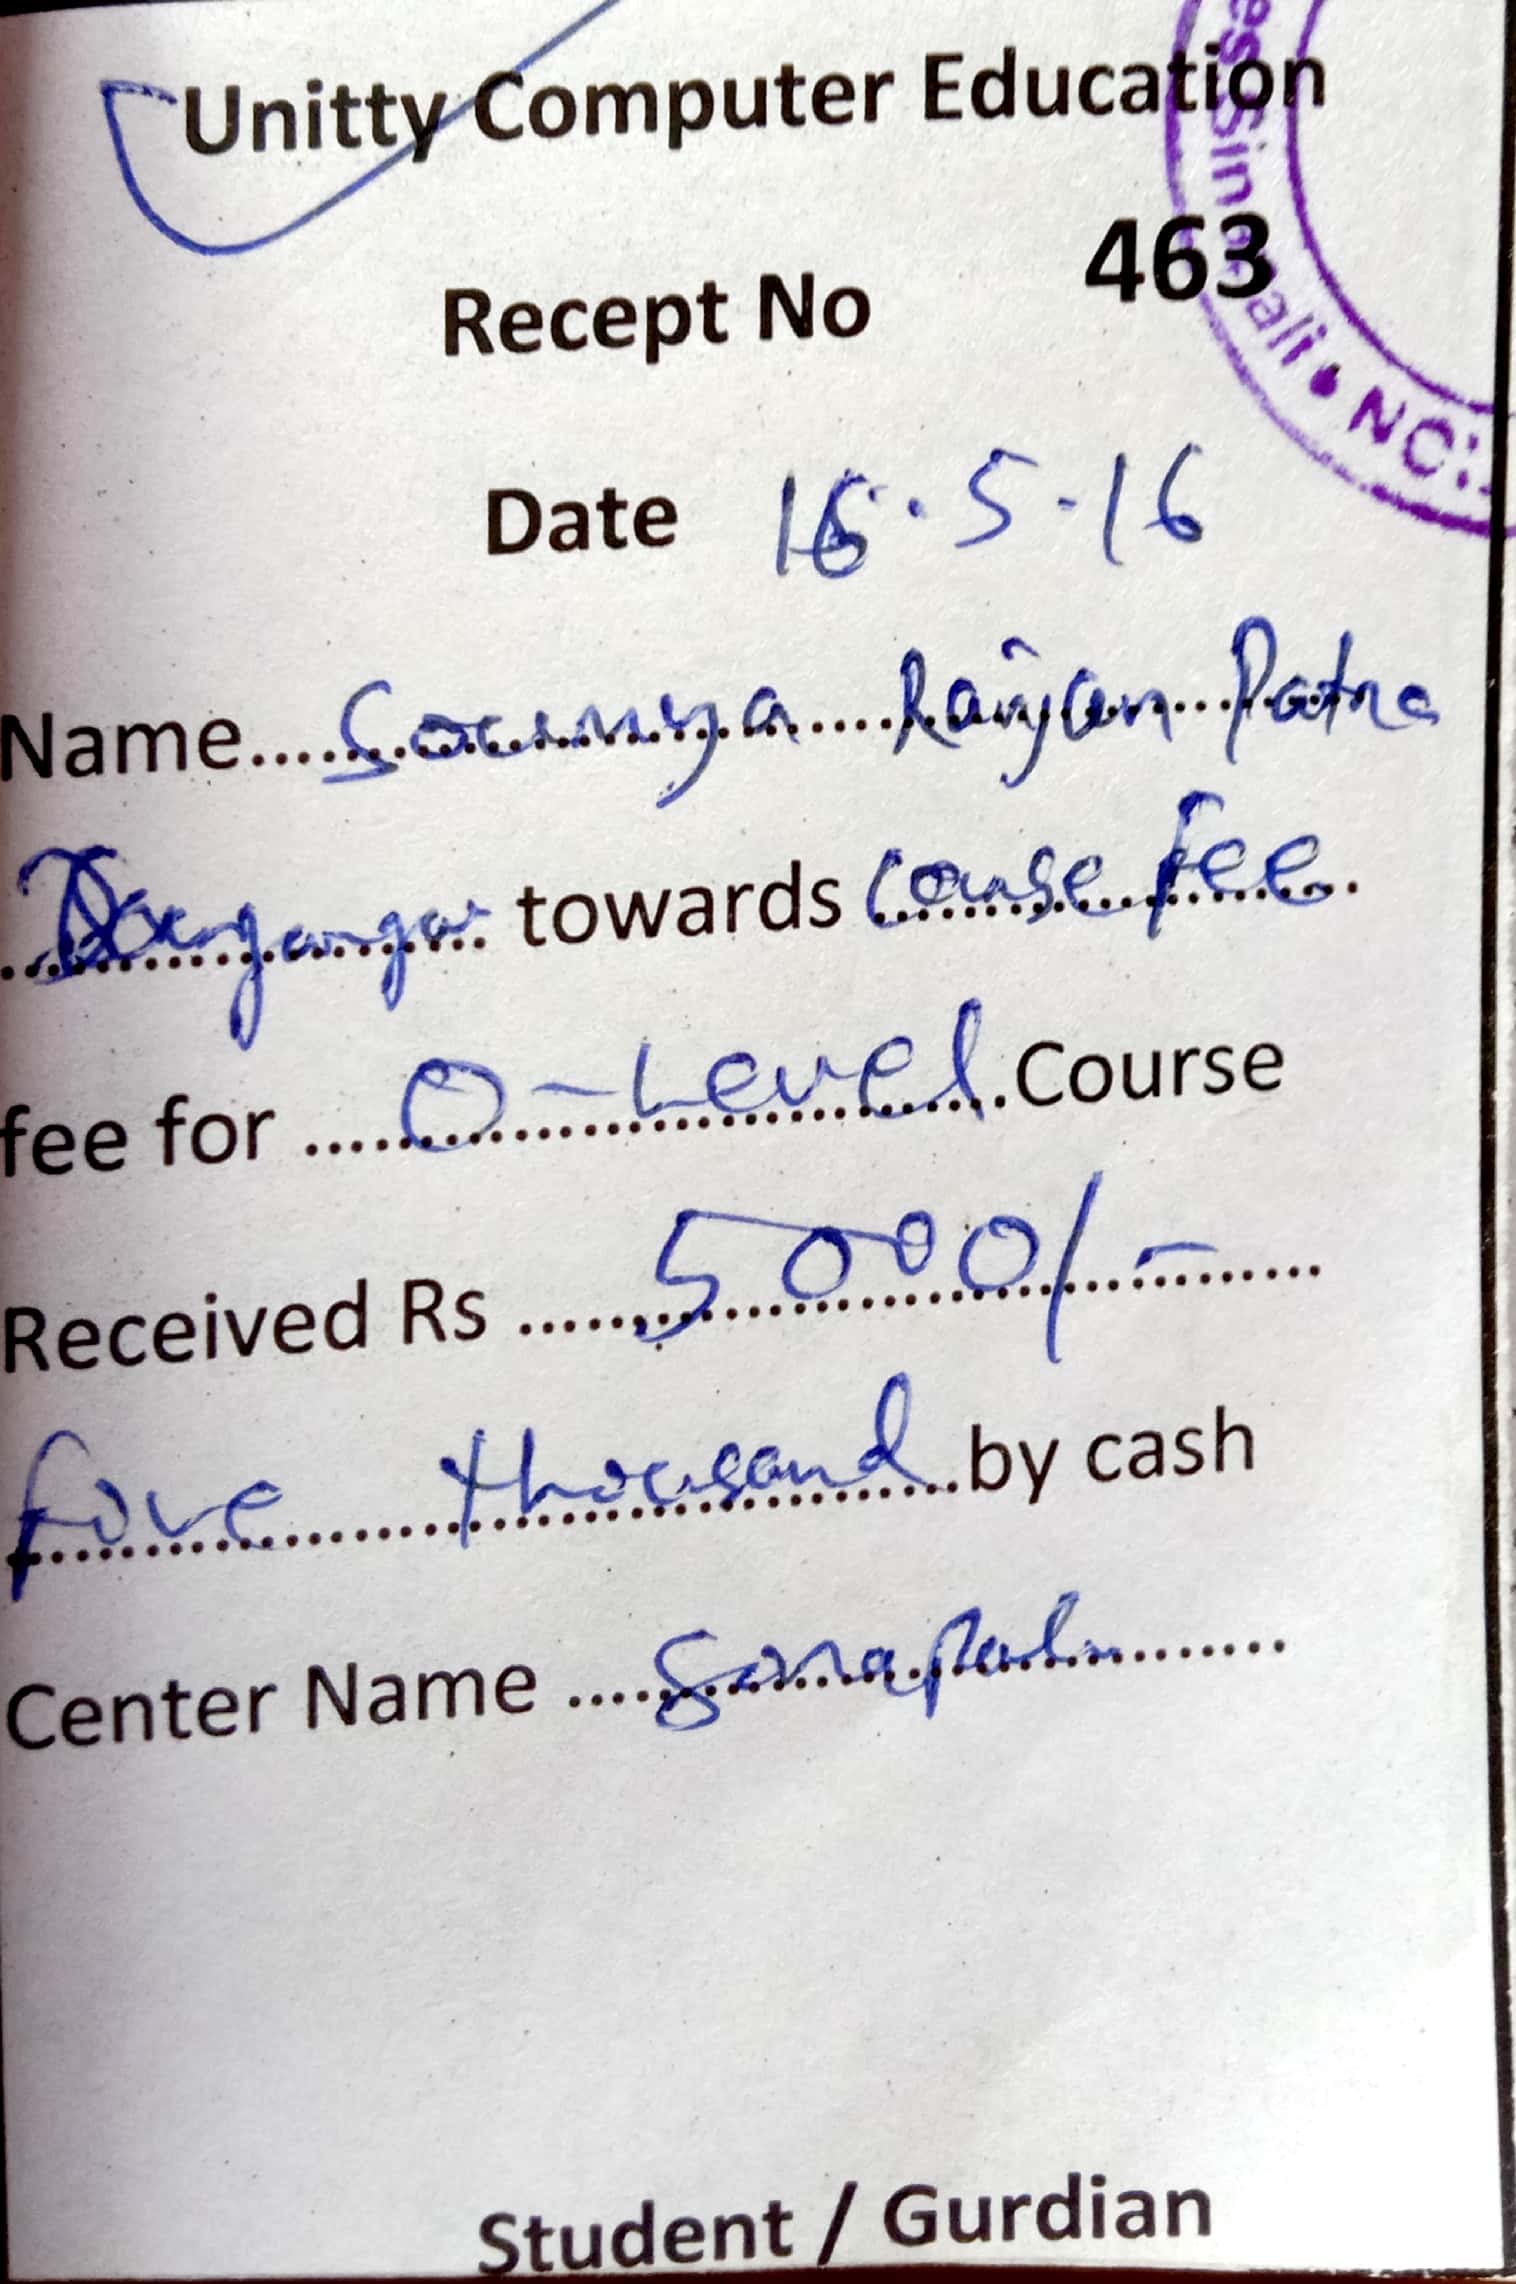 Unitty Computer Education
463
Recept No
Date 16.5.16
Name.... Soumya Ranjan Patra
towards course fee
fee for .... O-Level Course
Received Rs .... 5000/-
five thousand by cash
Center Name ....
Student / Gurdian
NC